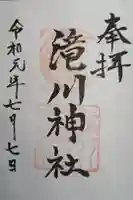 奉拝
滝川神社
令和元年七月七日